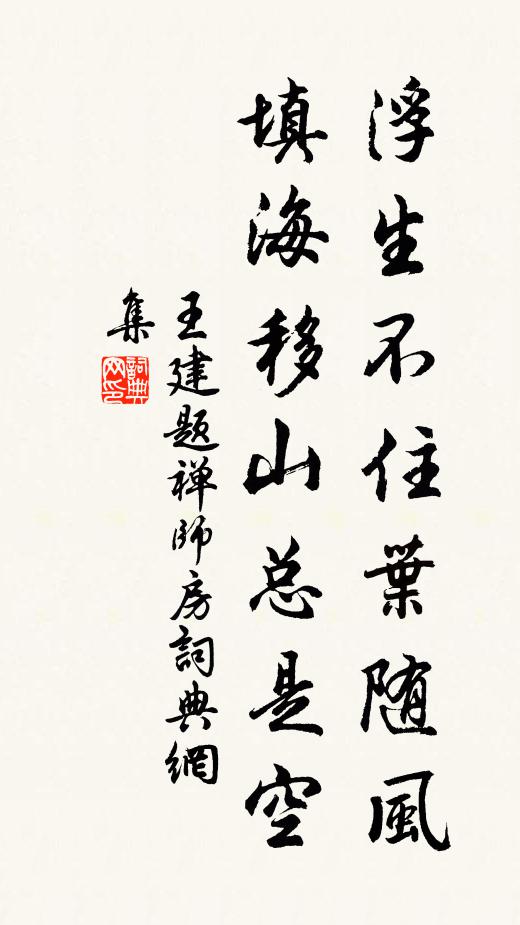 浮生不住葉随風
填海移山总是空
王建題禅師房詞典網
集
詞典網印